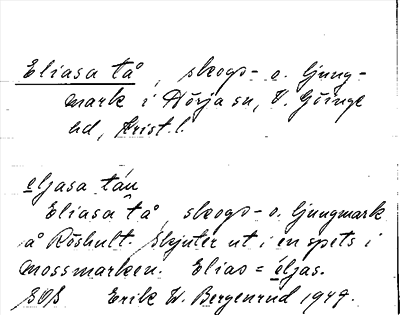 Eliasa tå, skogs- o. ljung-
mark i Nörja sn, V. Göinge
hd, Krist. l.
eljasa tán
Eliasa tå skogs- o. ljungmark
å Röshult. Skjuter ut i en spets i
mossmarken. Elias = éljas.
SOS Erik W. Bergenrud 1947.